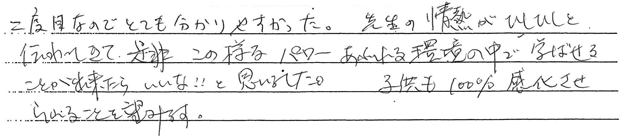 二度目なのでとても分かりやすかった。先生の情熱がひしひしと
伝わって来て、是非この様なパワーあふれる環境の中で学ばせる
ことが出来たらいいな!!と思いました。子供も100%感化させ
られることを望みます。